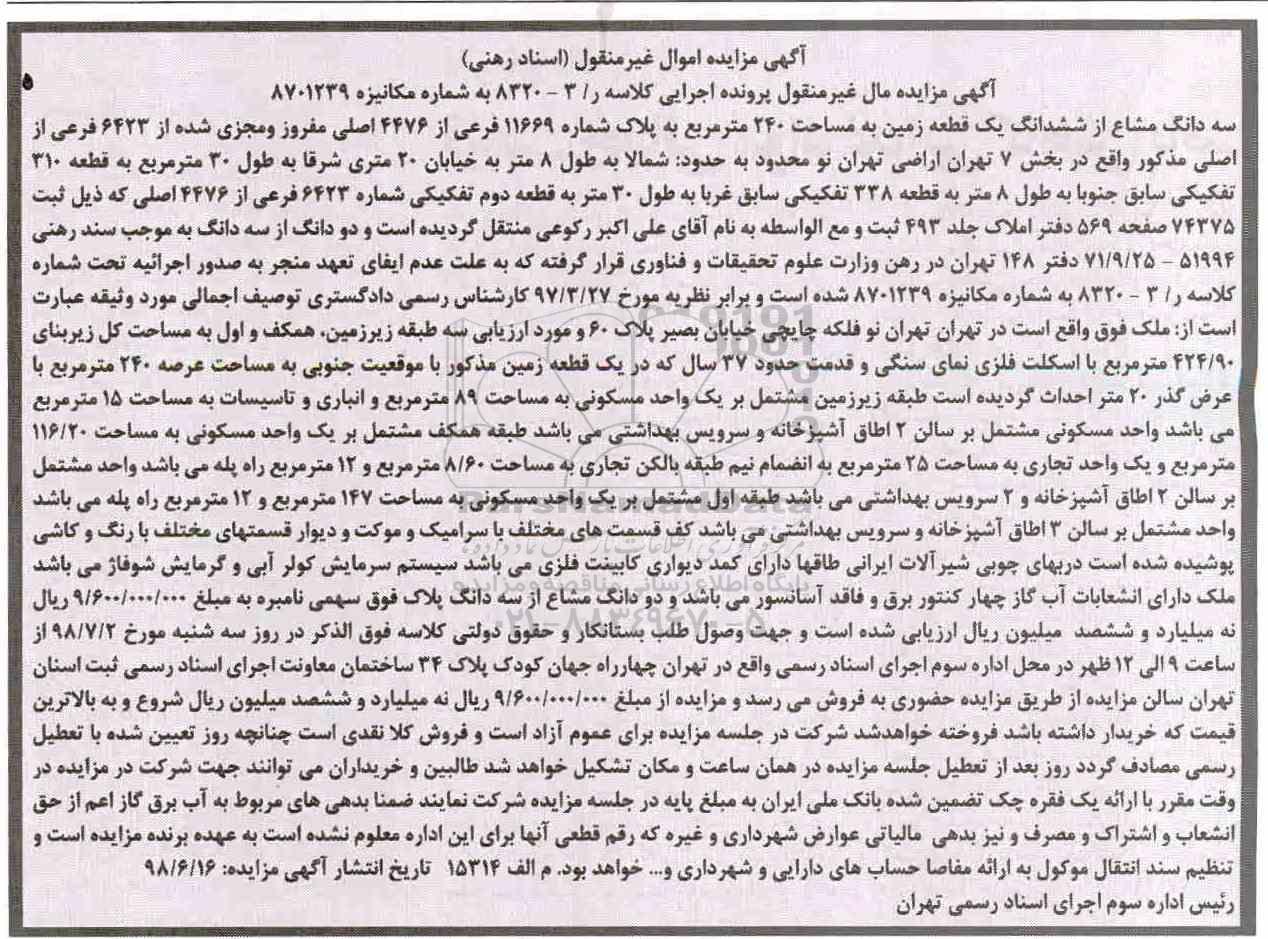 آگهی مزایده اموال غیرمنقول (اسناد رهنی)
آگهی مزایده مال غیرمنقول پرونده اجرایی کلاسه ر/ ۳ – ۸۳۲۰ به شماره مکانیزه ۸۷۰۱۲۳۹
۵
سه دانگ مشاع از ششدانگ یک قطعه زمین به مساحت ۲۴۰ مترمربع به پلاک شماره ۱۱۶۶۹ فرعی از ۴۴۷۶ اصلی مفروز ومجزی شده از ۶۴۲۳ فرعی از
اصلی مذکور واقع در بخش ۷ تهران اراضی تهران نو محدود به حدود: شمالا به طول ۸ متر به خیابان ۲۰ متری شرقا به طول ۳۰ مترمربع به قطعه ۳۱۰
تفکیکی سابق جنوبا به طول ۸ متر به قطعه ۳۳۸ تفکیکی سابق غربا به طول ۳۰ متر به قطعه دوم تفکیکی شماره ۶۴۲۳ فرعی از ۴۴۷۶ اصلی که ذیل ثبت
۷۴۳۷۵ صفحه ۵۶۹ دفتر املاک جلد ۴۹۳ ثبت و مع الواسطه به نام آقای علی اکبر رکوعی منتقل گردیده است و دو دانگ از سه دانگ به موجب سند رهنی
۵۱۹۹۴ – ۷۱/۹/۲۵ دفتر ۱۴۸ تهران در رهن وزارت علوم تحقیقات و فناوری قرار گرفته که به علت عدم ایفای تعهد منجر به صدور اجرائیه تحت شماره
کلاسه ر/ ۳ – ۸۳۲۰ به شماره مکانیزه ۸۷۰۱۲۳۹ شده است و برابر نظریه مورخ ۹۷/۳/۲۷ کارشناس رسمی دادگستری توصیف اجمالی مورد وثیقه عبارت
است از: ملک فوق واقع است در تهران تهران نو فلکه چایچی خیابان بصیر پلاک ۶۰ و مورد ارزیابی سه طبقه زیرزمین، همکف و اول به مساحت کل زیربنای
۴۲۴/۹۰ مترمربع با اسکلت فلزی نمای سنگی و قدمت حدود ۳۷ سال که در یک قطعه زمین مذکور با موقعیت جنوبی به مساحت عرصه ۲۴۰ مترمربع با
عرض گذر ۲۰ متر احداث گردیده است طبقه زیرزمین مشتمل بر یک واحد مسکونی به مساحت ۸۹ مترمربع و انباری و تاسیسات به مساحت ۱۵ مترمربع
می باشد واحد مسکونی مشتمل بر سالن ۲ اطاق آشپزخانه و سرویس بهداشتی می باشد طبقه همکف مشتمل بر یک واحد مسکونی به مساحت ۱۱۶/۲۰
مترمربع و یک واحد تجاری به مساحت ۲۵ مترمربع به انضمام نیم طبقه بالکن تجاری به مساحت ۸/۶۰ مترمربع و ۱۲ مترمربع راه پله می باشد واحد مشتمل
بر سالن ۲ اطاق آشپزخانه و ۲ سرویس بهداشتی می باشد طبقه اول مشتمل بر یک واحد مسکونی به مساحت ۱۴۷ مترمربع و ۱۲ مترمربع راه پله می باشد
واحد مشتمل بر سالن ۳ اطاق آشپزخانه و سرویس بهداشتی می باشد کف قسمت های مختلف با سرامیک و موکت و دیوار قسمتهای مختلف با رنگ و کاشی
پوشیده شده است دربهای چوبی شیرآلات ایرانی طاقها دارای کمد دیواری کابینت فلزی می باشد سیستم سرمایش کولر آبی و گرمایش شوفاژ می باشد
ملک دارای انشعابات آب گاز چهار کنتور برق و فاقد آسانسور می باشد و دو دانگ مشاع از سه دانگ پلاک فوق سهمی نامبره به مبلغ ۹/۶۰۰/۰۰۰/۰۰۰ ریال
نه میلیارد و ششصد میلیون ریال ارزیابی شده است و جهت وصول طلب بستانکار و حقوق دولتی کلاسه فوق الذکر در روز سه شنبه مورخ ۹۸/۷/۲ از
ساعت ۹ الی ۱۲ ظهر در محل اداره سوم اجرای اسناد رسمی واقع در تهران چهارراه جهان کودک پلاک ۳۴ ساختمان معاونت اجرای اسناد رسمی ثبت استان
تهران سالن مزایده از طریق مزایده حضوری به فروش می رسد و مزایده از مبلغ ۹/۶۰۰/۰۰۰/۰۰۰ ریال نه میلیارد و ششصد میلیون ریال شروع و به بالاترین
قیمت که خریدار داشته باشد فروخته خواهدشد شرکت در جلسه مزایده برای عموم آزاد است و فروش کلا نقدی است چنانچه روز تعیین شده با تعطیل
رسمی مصادف گردد روز بعد از تعطیل جلسه مزایده در همان ساعت و مکان تشکیل خواهد شد طالبین و خریداران می توانند جهت شرکت در مزایده در
وقت مقرر با ارائه یک فقره چک تضمین شده بانک ملی ایران به مبلغ پایه در جلسه مزایده شرکت نمایند ضمنا بدهی های مربوط به آب برق گاز اعم از حق
انشعاب و اشتراک و مصرف و نیز بدهی مالیاتی عوارض شهرداری و غیره که رقم قطعی آنها برای این اداره معلوم نشده است به عهده برنده مزایده است و
تنظیم سند انتقال موکول به ارائه مفاصا حساب های دارایی و شهرداری و... خواهد بود. م الف ۱۵۳۱۴ تاریخ انتشار آگهی مزایده: ۹۸/۶/۱۶
رئیس اداره سوم اجرای اسناد رسمی تهران
ParsNamadData
پایگاه اطلاع رسانی مناقصه و مزایده
۰۲۱-۸۸۳۴۹۶۷۰-۵